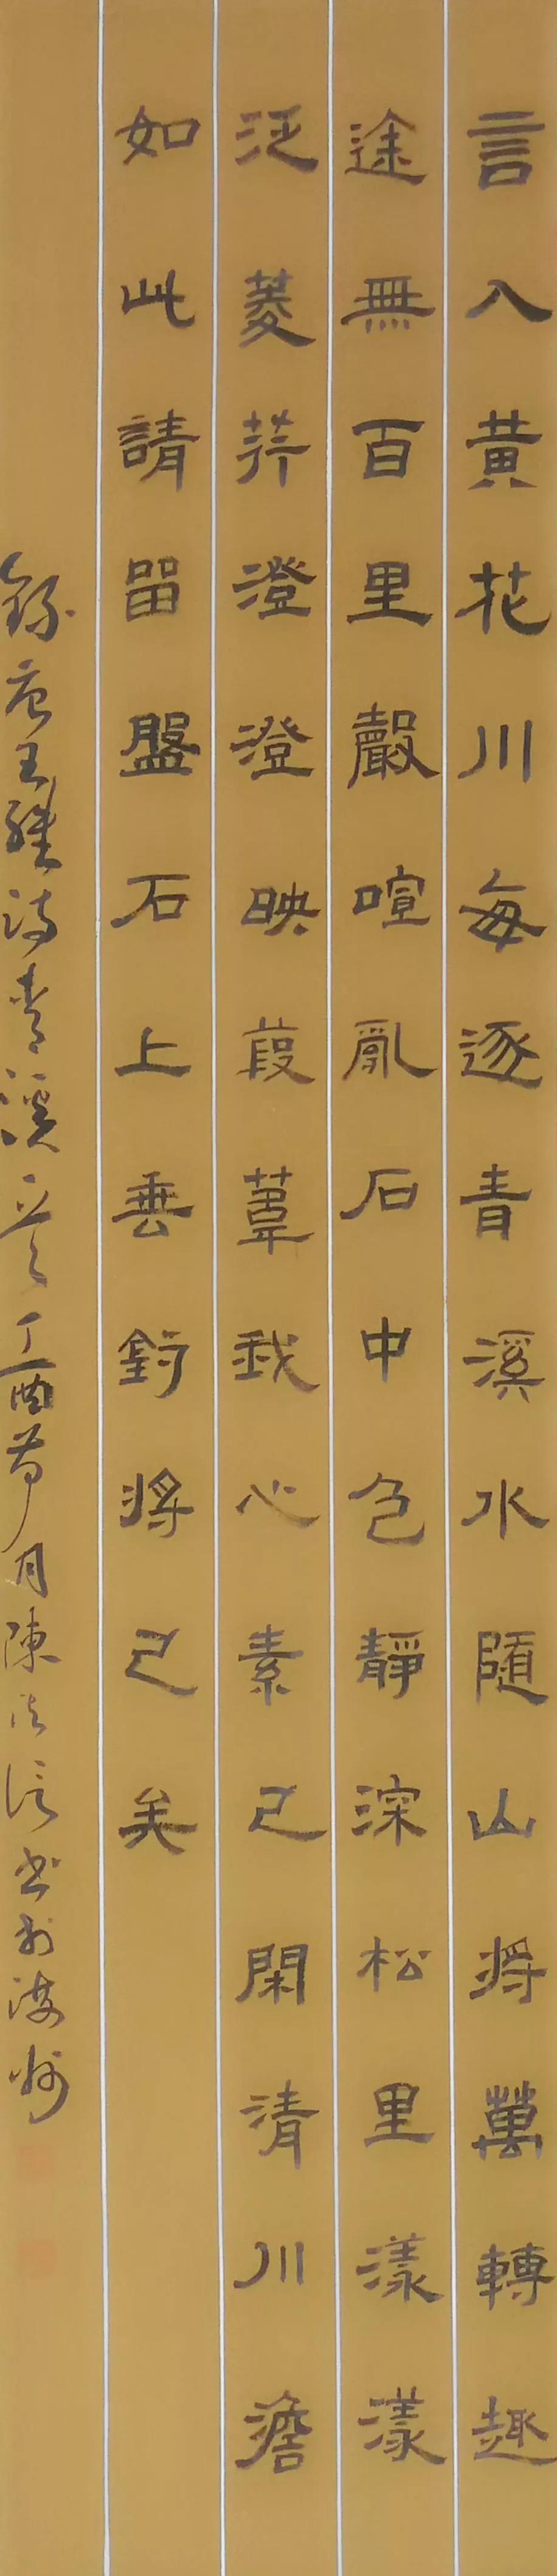 言入黄花川每逐青溪水隨山將萬轉趣
途無百里聲喧亂石中色靜深松里漾漾
泛菱荇澄澄映葭葦我心素已閑清川澹
如此請留盤石上垂釣將已矣
錄唐王維詩青溪一首丁酉荷月陳 信书於